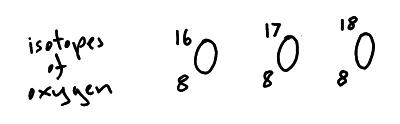 isotopes
of
oxygen
16 8 O 17 8 O 18 8 O